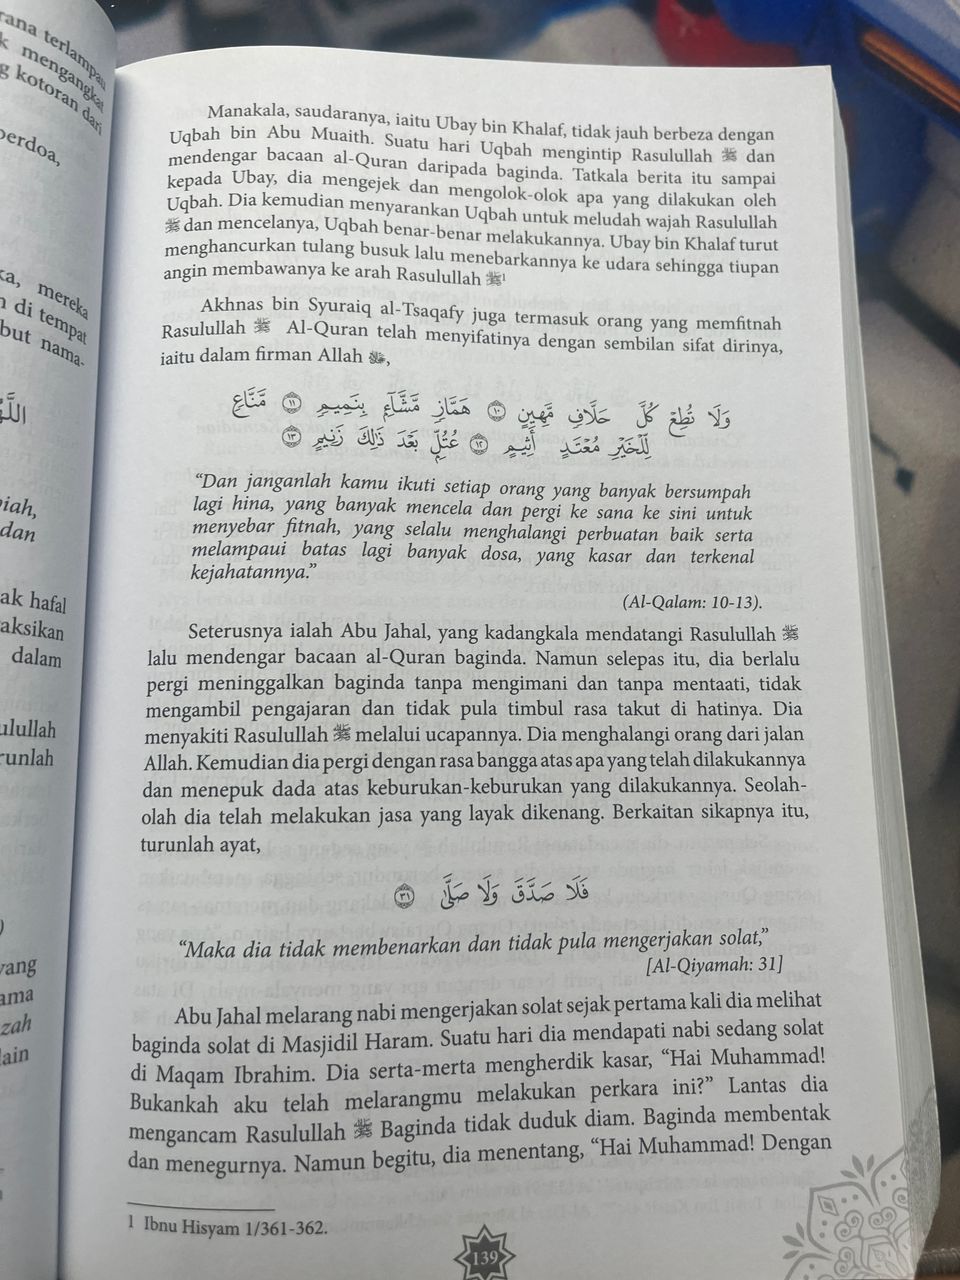 rana terlampau
k mengangkat
g kotoran dari
berdoa,
ka, mereka
n di tempat
but nama-
piah,
dan
ak hafal
aksikan
dalam
ulullah
runlah
)
yang
ama
zah
lain
Manakala, saudaranya, iaitu Ubay bin Khalaf, tidak jauh berbeza dengan
Uqbah bin Abu Muaith. Suatu hari Uqbah mengintip Rasulullah ﷺ dan
mendengar bacaan al-Quran daripada baginda. Tatkala berita itu sampai
kepada Ubay, dia mengejek dan mengolok-olok apa yang dilakukan oleh
Uqbah. Dia kemudian menyarankan Uqbah untuk meludah wajah Rasulullah
ﷺ dan mencelanya, Uqbah benar-benar melakukannya. Ubay bin Khalaf turut
menghancurkan tulang busuk lalu menebarkannya ke udara sehingga tiupan
angin membawanya ke arah Rasulullah ﷺ¹
Akhnas bin Syuraiq al-Tsaqafy juga termasuk orang yang memfitnah
Rasulullah ﷺ Al-Quran telah menyifatinya dengan sembilan sifat dirinya,
iaitu dalam firman Allah ﷻ,
وَلَا تُطِعْ كُلَّ حَلَّافٍ مَّهِينٍ ١٠ هَمَّازٍ مَّشَّآءٍۭ بِنَمِيمٍ ١١ مَّنَّاعٍ
لِّلْخَيْرِ مُعْتَدٍ أَثِيمٍ ١٢ عُتُلٍّۭ بَعْدَ ذَٰلِكَ زَنِيمٍ ١٣
“Dan janganlah kamu ikuti setiap orang yang banyak bersumpah
lagi hina, yang banyak mencela dan pergi ke sana ke sini untuk
menyebar fitnah, yang selalu menghalangi perbuatan baik serta
melampaui batas lagi banyak dosa, yang kasar dan terkenal
kejahatannya.”
(Al-Qalam: 10-13).
Seterusnya ialah Abu Jahal, yang kadangkala mendatangi Rasulullah ﷺ
lalu mendengar bacaan al-Quran baginda. Namun selepas itu, dia berlalu
pergi meninggalkan baginda tanpa mengimani dan tanpa mentaati, tidak
mengambil pengajaran dan tidak pula timbul rasa takut di hatinya. Dia
menyakiti Rasulullah ﷺ melalui ucapannya. Dia menghalangi orang dari jalan
Allah. Kemudian dia pergi dengan rasa bangga atas apa yang telah dilakukannya
dan menepuk dada atas keburukan-keburukan yang dilakukannya. Seolah-
olah dia telah melakukan jasa yang layak dikenang. Berkaitan sikapnya itu,
turunlah ayat,
فَلَا صَدَّقَ وَلَا صَلَّىٰ ٣١
“Maka dia tidak membenarkan dan tidak pula mengerjakan solat,”
[Al-Qiyamah: 31]
Abu Jahal melarang nabi mengerjakan solat sejak pertama kali dia melihat
baginda solat di Masjidil Haram. Suatu hari dia mendapati nabi sedang solat
di Maqam Ibrahim. Dia serta-merta mengherdik kasar, “Hai Muhammad!
Bukankah aku telah melarangmu melakukan perkara ini?” Lantas dia
mengancam Rasulullah ﷺ Baginda tidak duduk diam. Baginda membentak
dan menegurnya. Namun begitu, dia menentang, “Hai Muhammad! Dengan
1 Ibnu Hisyam 1/361-362.
139